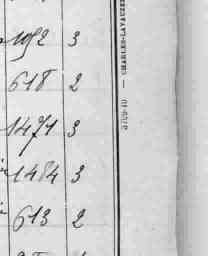 1052 3
618 2
1471 3
1484 3
613 2
CHARLES-LAVAUZEL